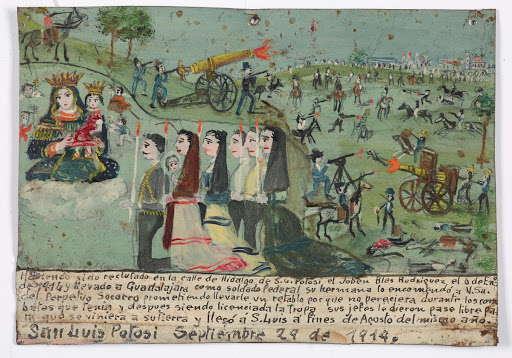 Habiendo sido reclutado en la calle de Hidalgo de S. Luis Potosi el Joben Blas Rodriguez el 6 de En.
de 1914 y llevado a Guadalajara como soldado Federal su hermana lo encomendó a N. Sa.
del Perpetuo Socorro prometiendo llevarle un retablo por que no pereciera durante los com
bates que tenia y despues siendo licenciada la tropa sus jefes le dieron pase libre pa
ra que se viniera a su tierra y llegó a S. Luis a fines de Agosto del mismo año.
San Luis Potosi Septiembre 29 de 1914.